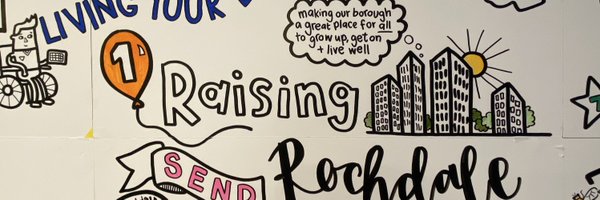 LIVING YOUR
making our borough
a great place for all
to grow up, get on
+ live well
1
Raising
SEND
Rochdale